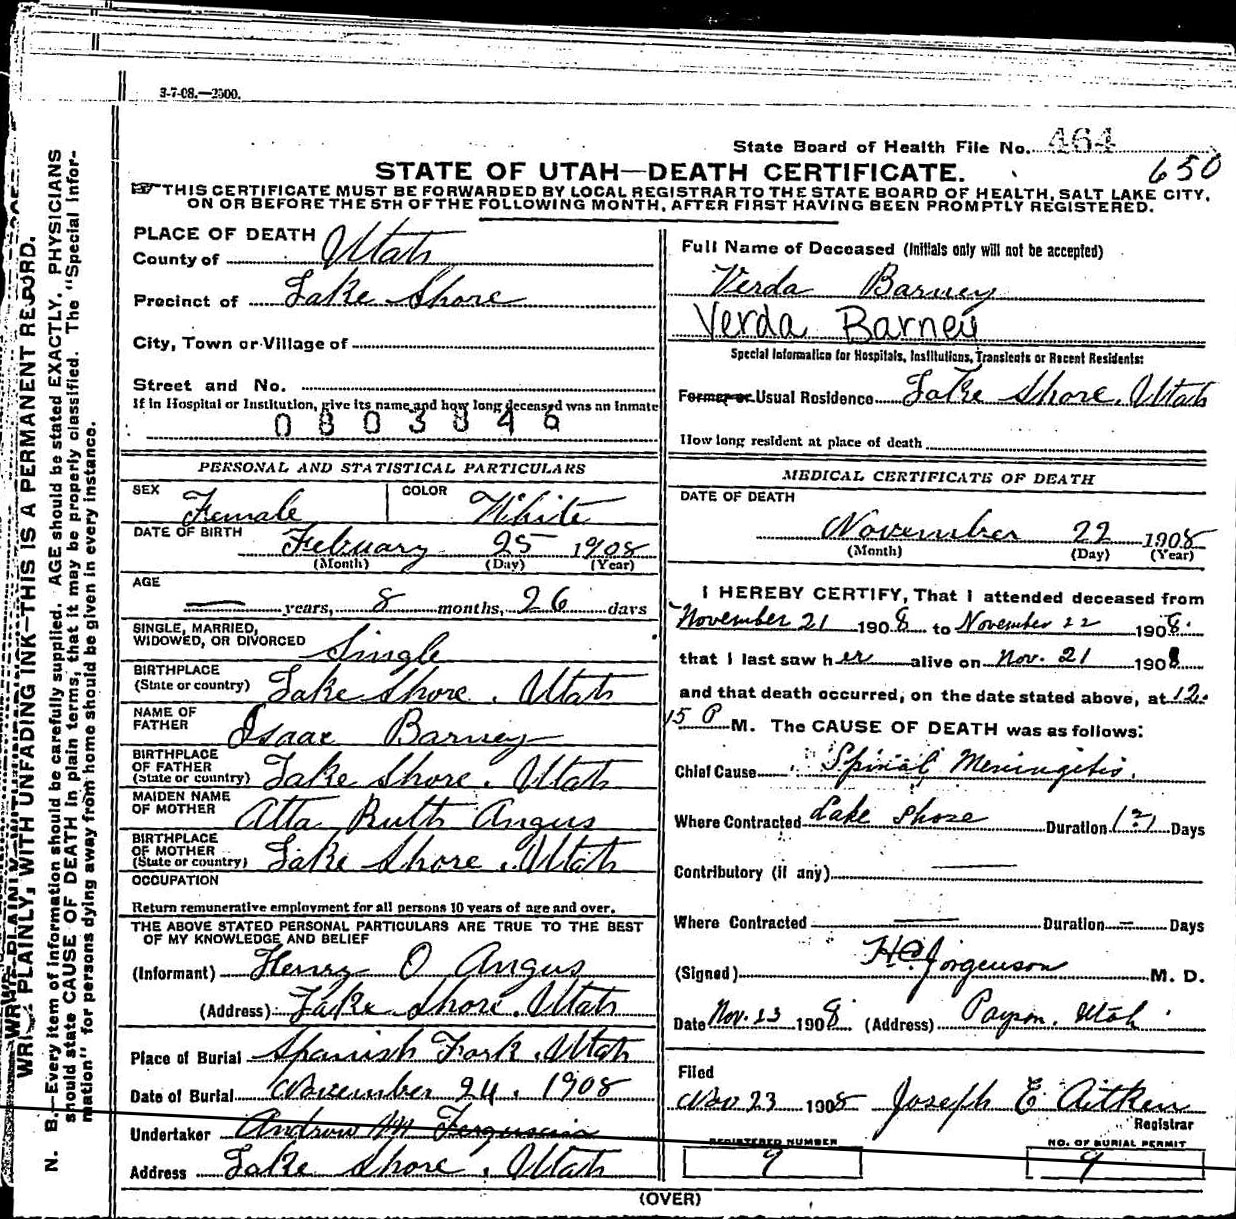 3-7-08.—2500.
State Board of Health File No. 464
650
STATE OF UTAH—DEATH CERTIFICATE.
☞THIS CERTIFICATE MUST BE FORWARDED BY LOCAL REGISTRAR TO THE STATE BOARD OF HEALTH, SALT LAKE CITY,
ON OR BEFORE THE 5TH OF THE FOLLOWING MONTH, AFTER FIRST HAVING BEEN PROMPTLY REGISTERED.
WRITE PLAINLY, WITH UNFADING INK—THIS IS A PERMANENT RECORD.
N. B.—Every item of information should be carefully supplied. AGE should be stated EXACTLY. PHYSICIANS
should state CAUSE OF DEATH in plain terms, that it may be properly classified. The "Special Infor-
mation" for persons dying away from home should be given in every instance.
PLACE OF DEATH
County of Utah
Precinct of Lake Shore
City, Town or Village of
Street and No.
If in Hospital or Institution, give its name and how long deceased was an Inmate
0803846
PERSONAL AND STATISTICAL PARTICULARS
SEX Female COLOR White
DATE OF BIRTH February 25 1908
(Month) (Day) (Year)
AGE
— years, 8 months, 26 days
SINGLE, MARRIED,
WIDOWED, OR DIVORCED Single
BIRTHPLACE
(State or country) Lake Shore, Utah
NAME OF
FATHER Isaac Barney
BIRTHPLACE
OF FATHER
(State or country) Lake Shore, Utah
MAIDEN NAME
OF MOTHER Atta Ruth Angus
BIRTHPLACE
OF MOTHER
(State or country) Lake Shore, Utah
OCCUPATION
Return remunerative employment for all persons 10 years of age and over.
THE ABOVE STATED PERSONAL PARTICULARS ARE TRUE TO THE BEST
OF MY KNOWLEDGE AND BELIEF
(Informant) Henry O Angus
(Address) Lake Shore, Utah
Place of Burial Spanish Fork, Utah
Date of Burial November 24, 1908
Undertaker Andrew M
Address Lake Shore, Utah
Full Name of Deceased (Initials only will not be accepted)
Verda Barney
Verda Barney
Special Information for Hospitals, Institutions, Transients or Recent Residents:
Former or Usual Residence Lake Shore, Utah
How long resident at place of death
MEDICAL CERTIFICATE OF DEATH
DATE OF DEATH
November 22 1908
(Month) (Day) (Year)
I HEREBY CERTIFY, That I attended deceased from
November 21 1908 to November 22 1908.
that I last saw her alive on Nov. 21 1908
and that death occurred, on the date stated above, at 12.
15 P M. The CAUSE OF DEATH was as follows:
Chief Cause Spinal Meningitis.
Where Contracted Lake Shore Duration 1(?) Days
Contributory (if any) —
Where Contracted — Duration — Days
(Signed) Jorgenson M. D.
Date Nov. 23 1908 (Address) Payson, Utah
Filed
Nov 23 1908 Joseph E Aitken
Registrar
REGISTERED NUMBER
9
NO. OF BURIAL PERMIT
9
(OVER)